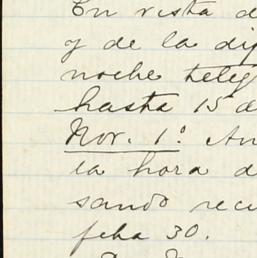 En vista d
y de la dip
noche teleg
hasta 15 d
Nov. 1º. An
la hora d
sando reci
feha 30.